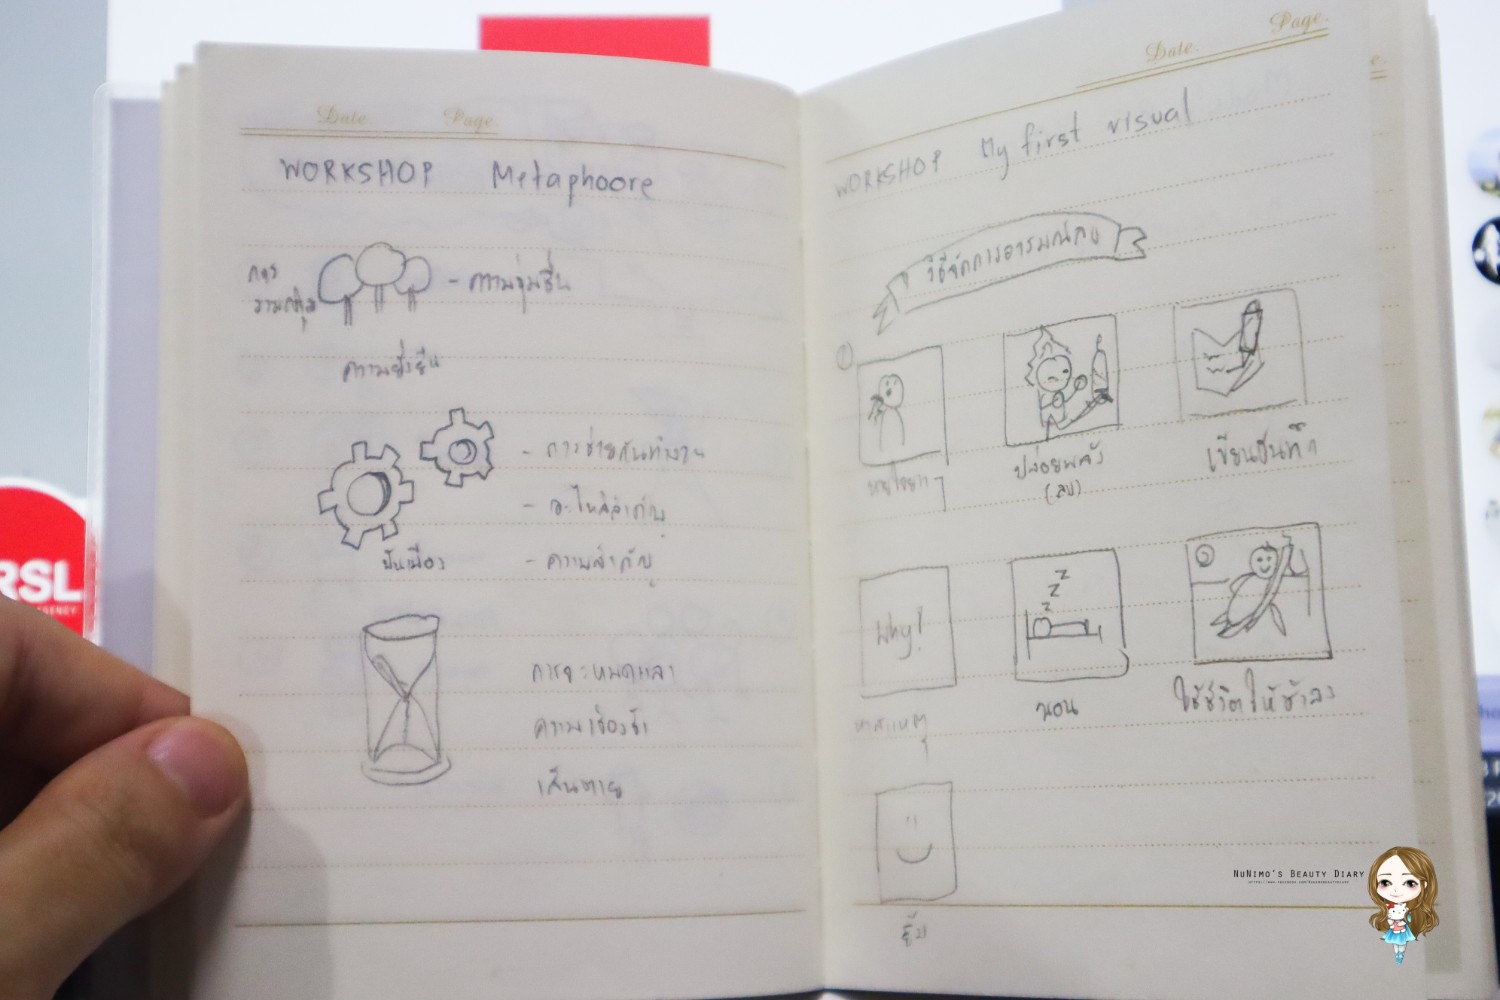 Date. Page.
WORKSHOP Metaphoore
การ
รวมกลุ่ม
- ความชุ่มชื่น
ความยั่งยืน
- การช่วยกันทำงาน
- อะไหล่สำคัญ
- ความสำคัญ
ฟันเฟือง
การจะหมดเวลา
ความเชื่องช้า
เส้นตาย
Date. Page.
WORKSHOP My first visual
วิธีจัดการอารมณ์ลบ
1
หายใจยาวๆ
ปล่อยพลัง
(ลบ)
เขียนบันทึก
Why?
z z z
หาสาเหตุ
นอน
ใช้ชีวิตให้ช้าลง
ยิ้ม
RSL
NuNimo's Beauty Diary